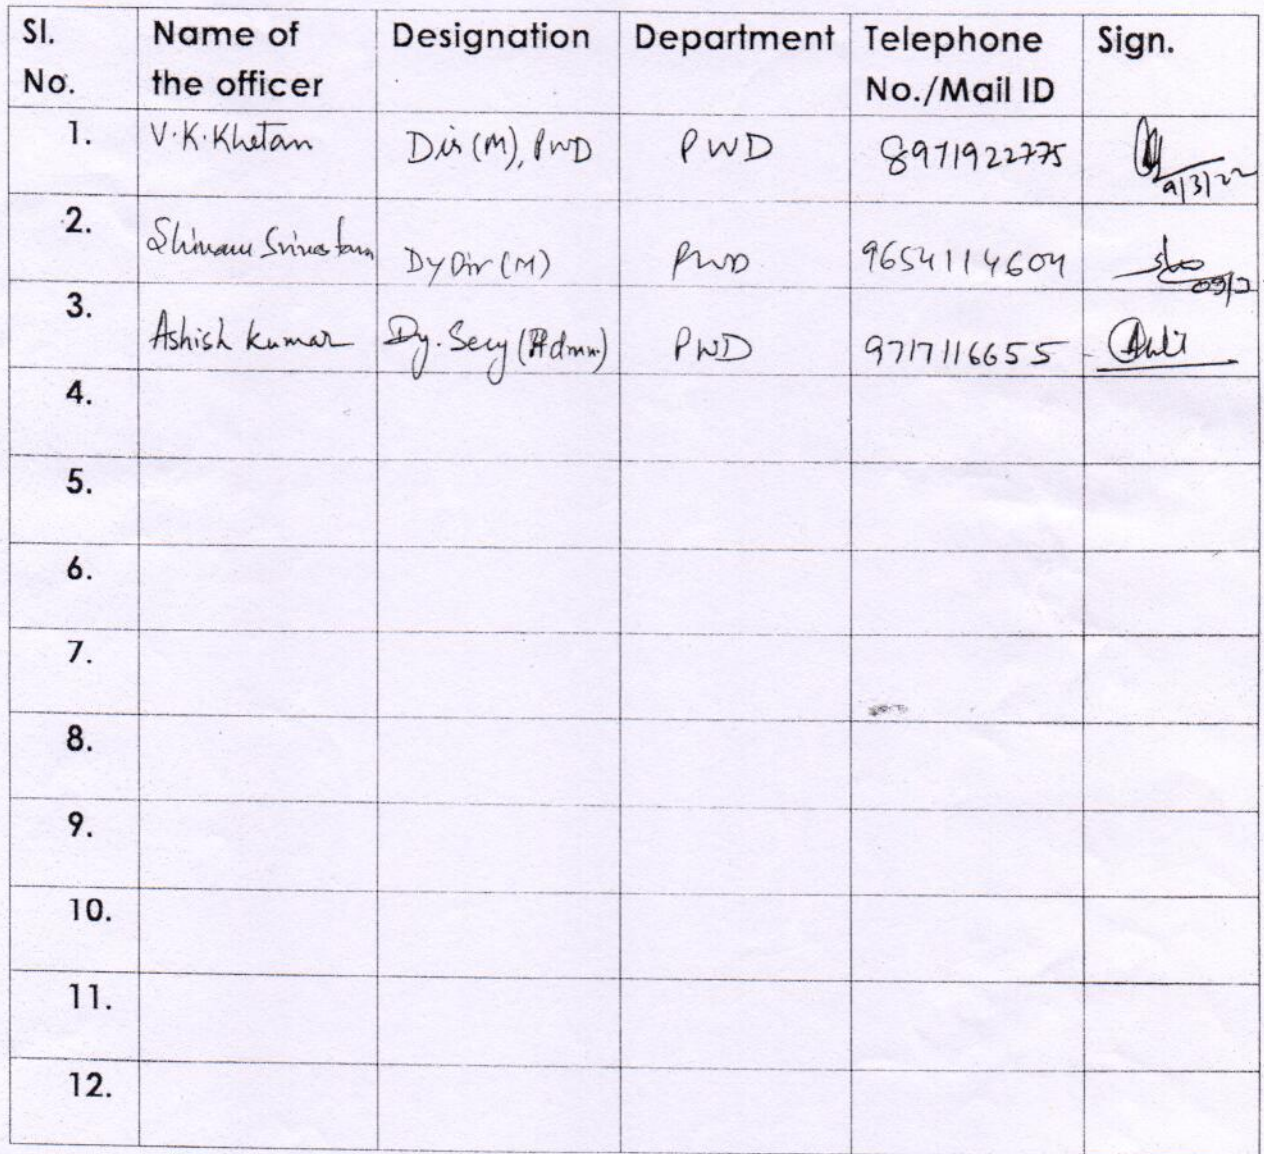 Sl. No. Name of the officer Designation Department Telephone No./Mail ID Sign.
1. V.K.Khetan Dir (M), PWD PWD 8971922775 9/3/22
2. Srivastava Dy Dir (M) PWD 9654114604
3. Ashish Kumar Dy. Secy (Admn.) PWD 9717116655
4.
5.
6.
7.
8.
9.
10.
11.
12.